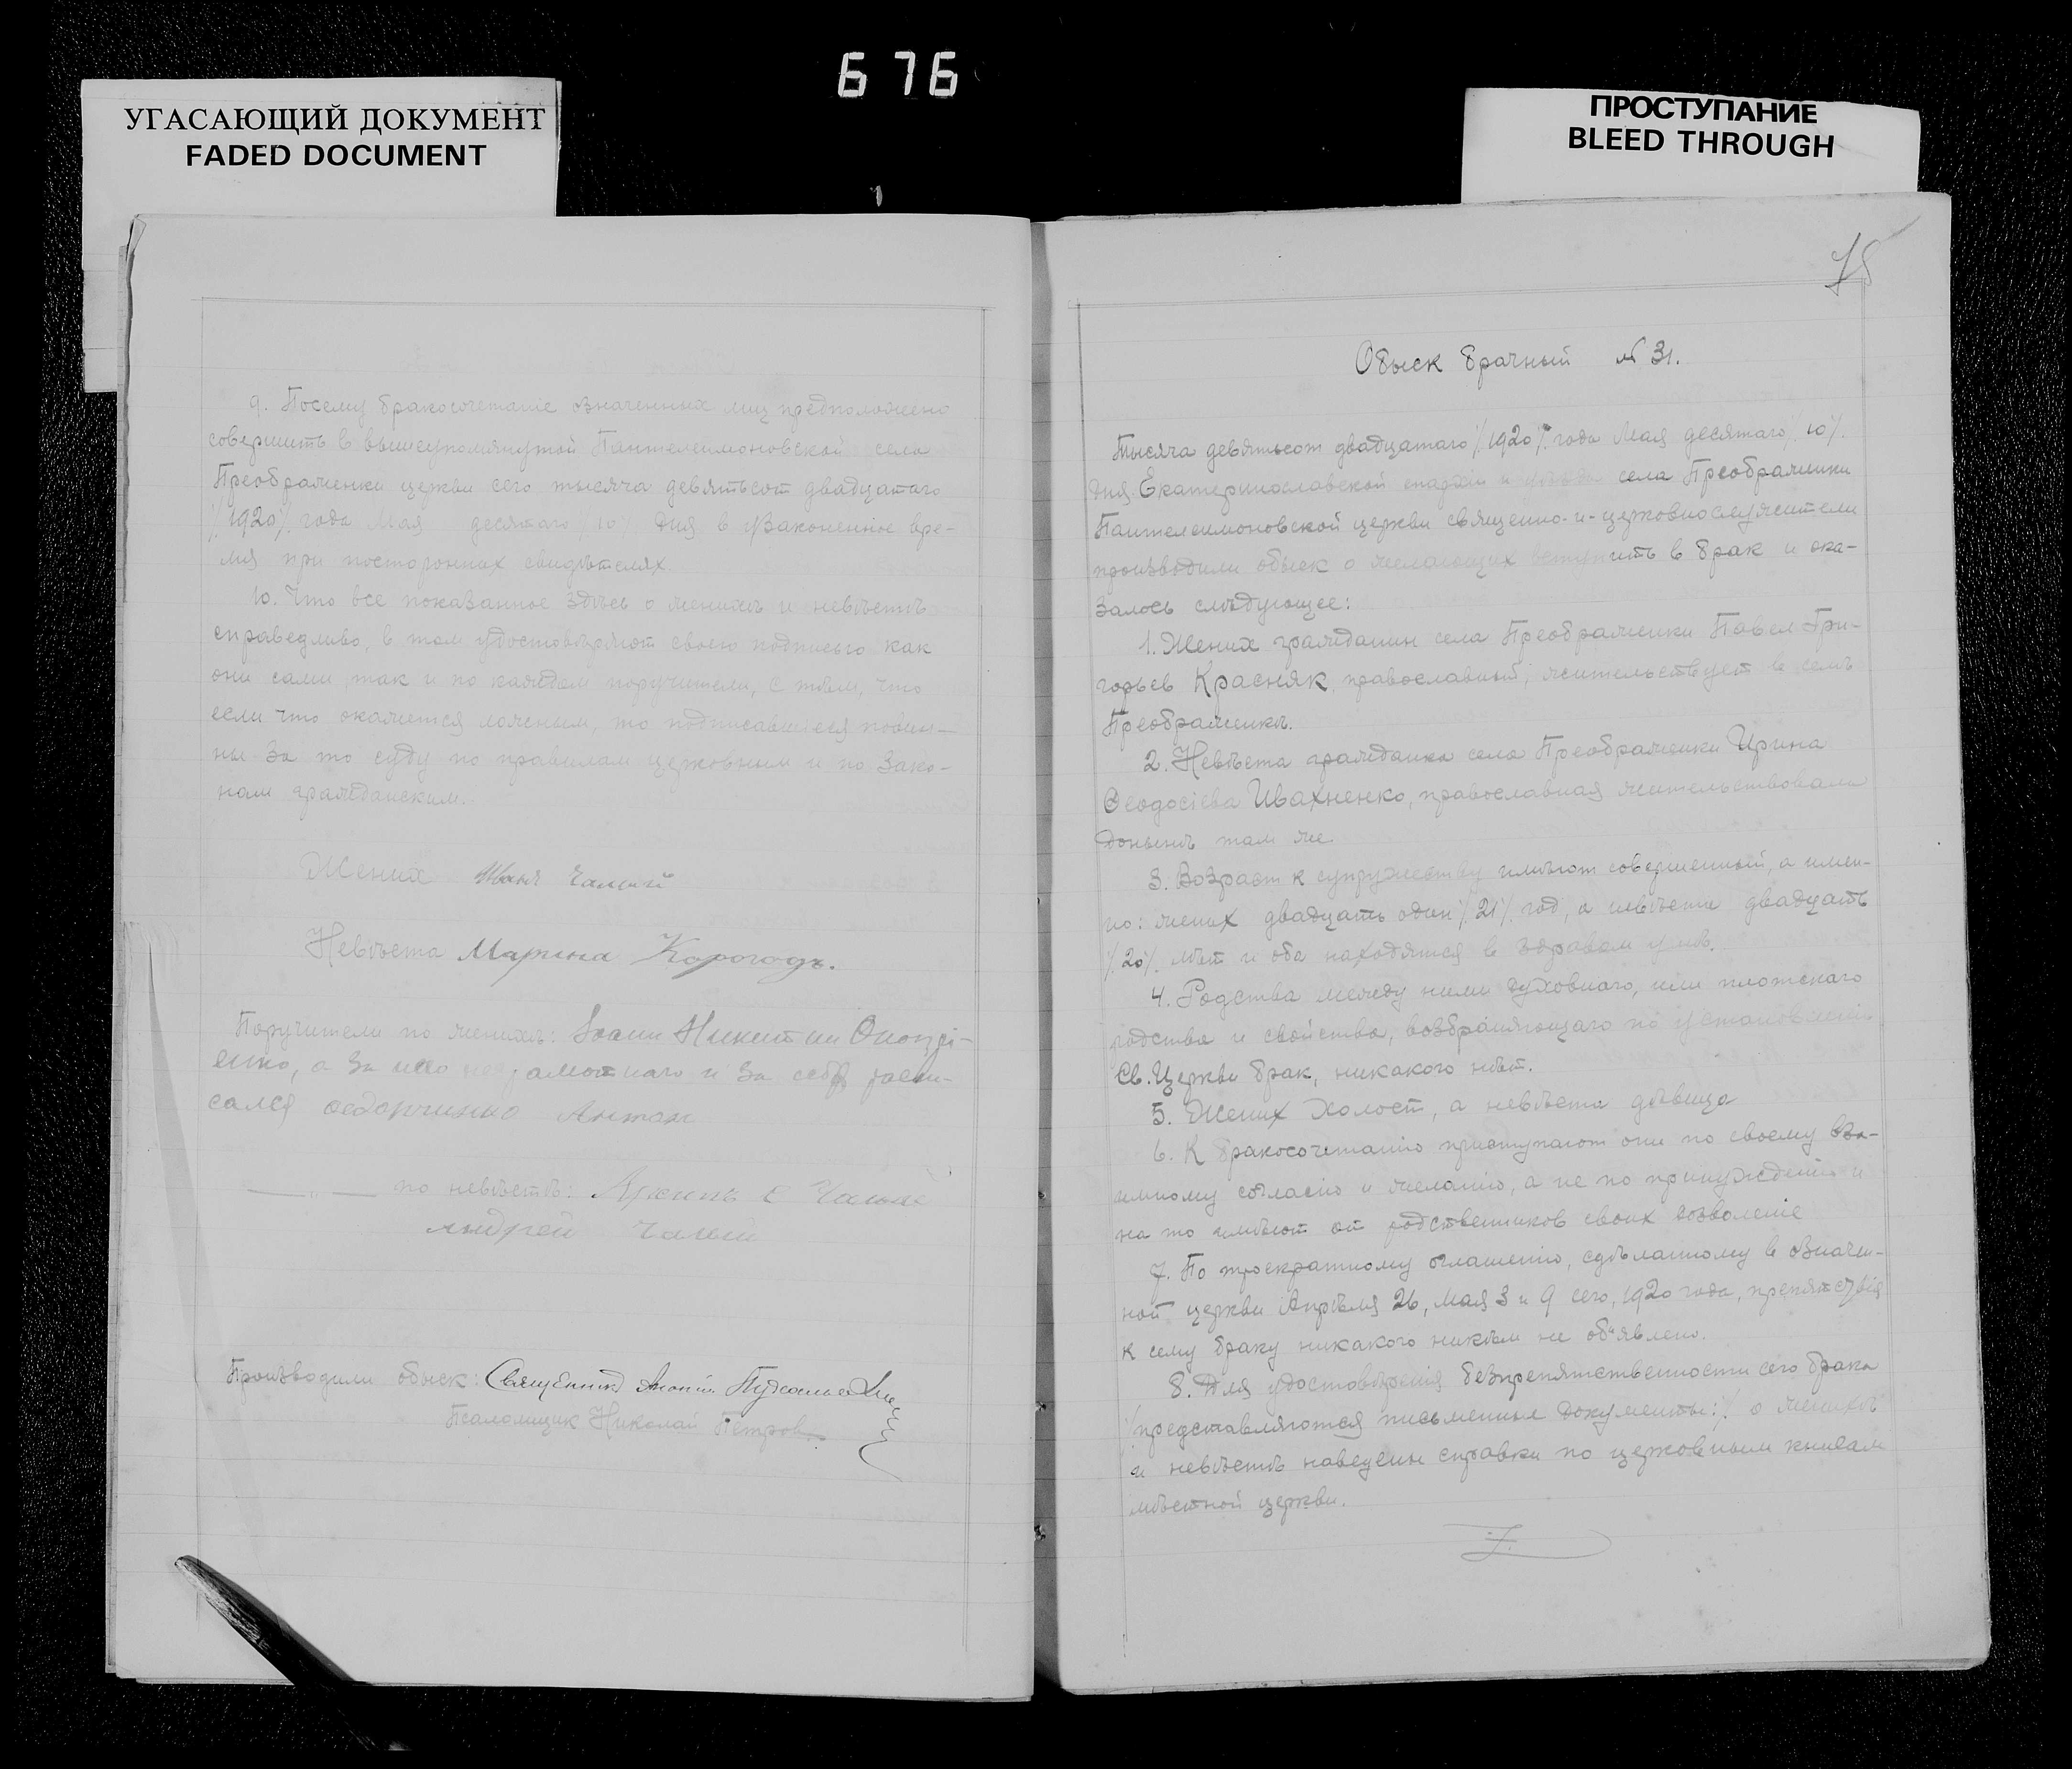 676
УГАСАЮЩИЙ ДОКУМЕНТ
FADED DOCUMENT
ПРОСТУПАНИЕ
BLEED THROUGH
9. Посему бракосочетаніе означенных лиц предположено
совершить в вышеупомянутой Пантелеимоновской села
Преображенки церкви сего тысяча девятьсот двадцатаго
/.1920/. года Мая десятаго /.10/. дня в узаконенное вре-
мя при посторонних свидѣтелях.
10. Что все показанное здѣсь о женихѣ и невѣстѣ
справедливо, в том удостовѣряют своею подписью как
они сами, так и по каждом поручители, с тѣм, что
если что окажется ложным, то подписавшіеся повин-
ны за то суду по правилам церковным и по зако-
нам гражданским.
Жених Иван Чалый
Невѣста Марина Корогодъ.
Поручители по женихѣ: Іоанн Никитин
а за него неграмотнаго и за себя распи-
сался Антон
—"— по невѣстѣ: С Чалый
Андрей Чалый
Производили обыск: Священник
Псаломщик Николай Петров.
75
Обыск брачный № 31.
Тысяча девятьсот двадцатаго /.1920/. года Мая десятаго /.10/.
дня Екатеринославской епархіи и уѣзда села Преображенки
Пантелеимоновской церкви священно-и-церковнослужители
производили обыск о желающих вступить в брак и ока-
залось слѣдующее:
1. Жених гражданин села Преображенки Павел Гри-
горьев Красняк, православный, жительствует в селѣ
Преображенкѣ.
2. Невѣста гражданка села Преображенки Ирина
Ѳеодосіева Ивахненко, православная жительствовала
донынѣ там же.
3. Возраст к супружеству имѣют совершенный, а имен-
но: жених двадцать один /.21/. год, а невѣста двадцать
/.20/. лѣт и оба находятся в здравом умѣ.
4. Родства между ними духовнаго, или плотскаго
родства и свойства, возбраняющаго по установленію
Св. Церкви брак, никакого нѣт.
5. Жених холост, а невѣста дѣвица
6. К бракосочетанію приступают они по своему вза-
имному согласію и желанію, а не по принужденію и
на то имѣют от родственников своих дозволеніе
7. По троекратному оглашенію, сдѣланному в означен-
ной церкви Апрѣля 26, Мая 3 и 9 сего, 1920 года, препятствія
к сему браку никакого никѣм не об"явлено.
8. Для удостовѣренія безпрепятственности сего брака
/представляются письменные документы:/. о женихѣ
и невѣстѣ наведены справки по церковным книгам
мѣстной церкви.